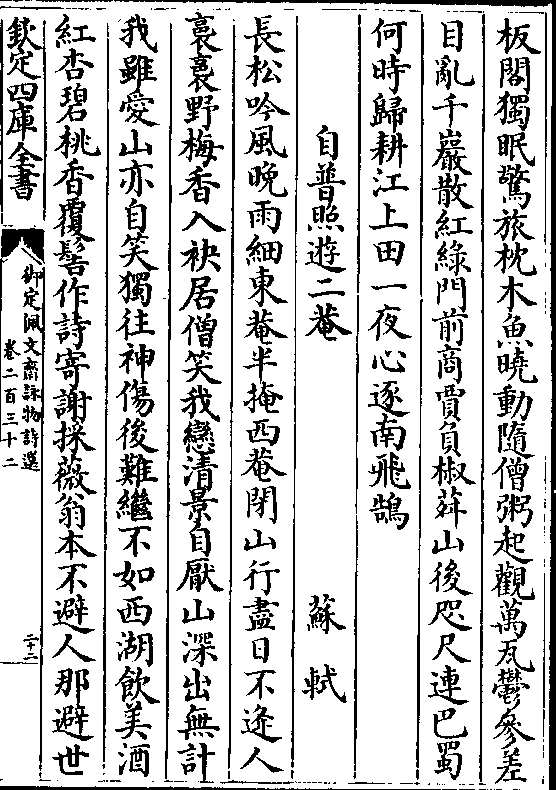 板閣獨眠驚旅枕木魚曉動隨僧粥起觀萬瓦鬱參差
目亂千巖散紅綠門前商賈負椒荈山後咫尺連巴蜀
何時歸耕江上田一夜心逐南飛鵠
自普照遊二菴　蘇軾
長松吟風晚雨細東菴半掩西菴閉山行盡日不逢人
裛裛野梅香入袂居僧笑我戀清景自厭山深出無計
我雖愛山亦自笑獨往神傷後難繼不如西湖飲美酒
紅杏碧桃香覆髻作詩寄謝採薇翁本不避人那避世
欽定四庫全書
御定佩文齋詠物詩選
卷二百三十二
二十二